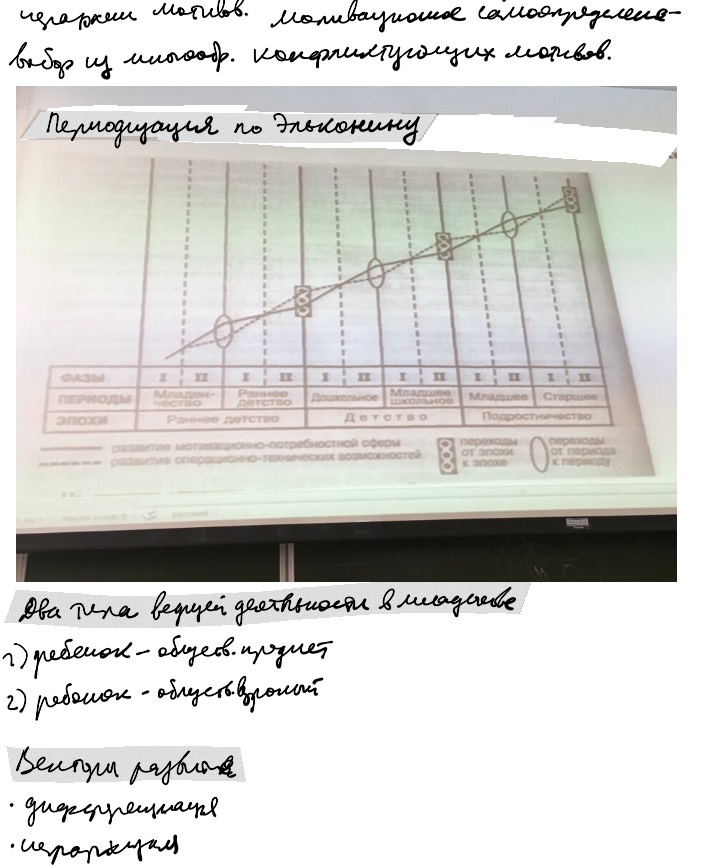 иерархии мотивов. Мотивационное самоопределение-
выбор из многообр. конфликтующих мотивов.
Периодизация по Эльконину
ФАЗЫ I II I II I II I II I II I II
ПЕРИОДЫ Младен-чество Раннее детство Дошкольное Младшее школьное Младшее Старшее
ЭПОХИ Раннее детство Детство Подростничество
развитие мотивационно-потребностной сферы
развитие операционно-технических возможностей
переходы от эпохи к эпохе
переходы от периода к периоду
Два типа ведущей деятельности в младенчестве
1) ребенок - обществ. предмет
2) ребенок - обществ. взрослый
Векторы развития
• дифференциация
• иерархизация